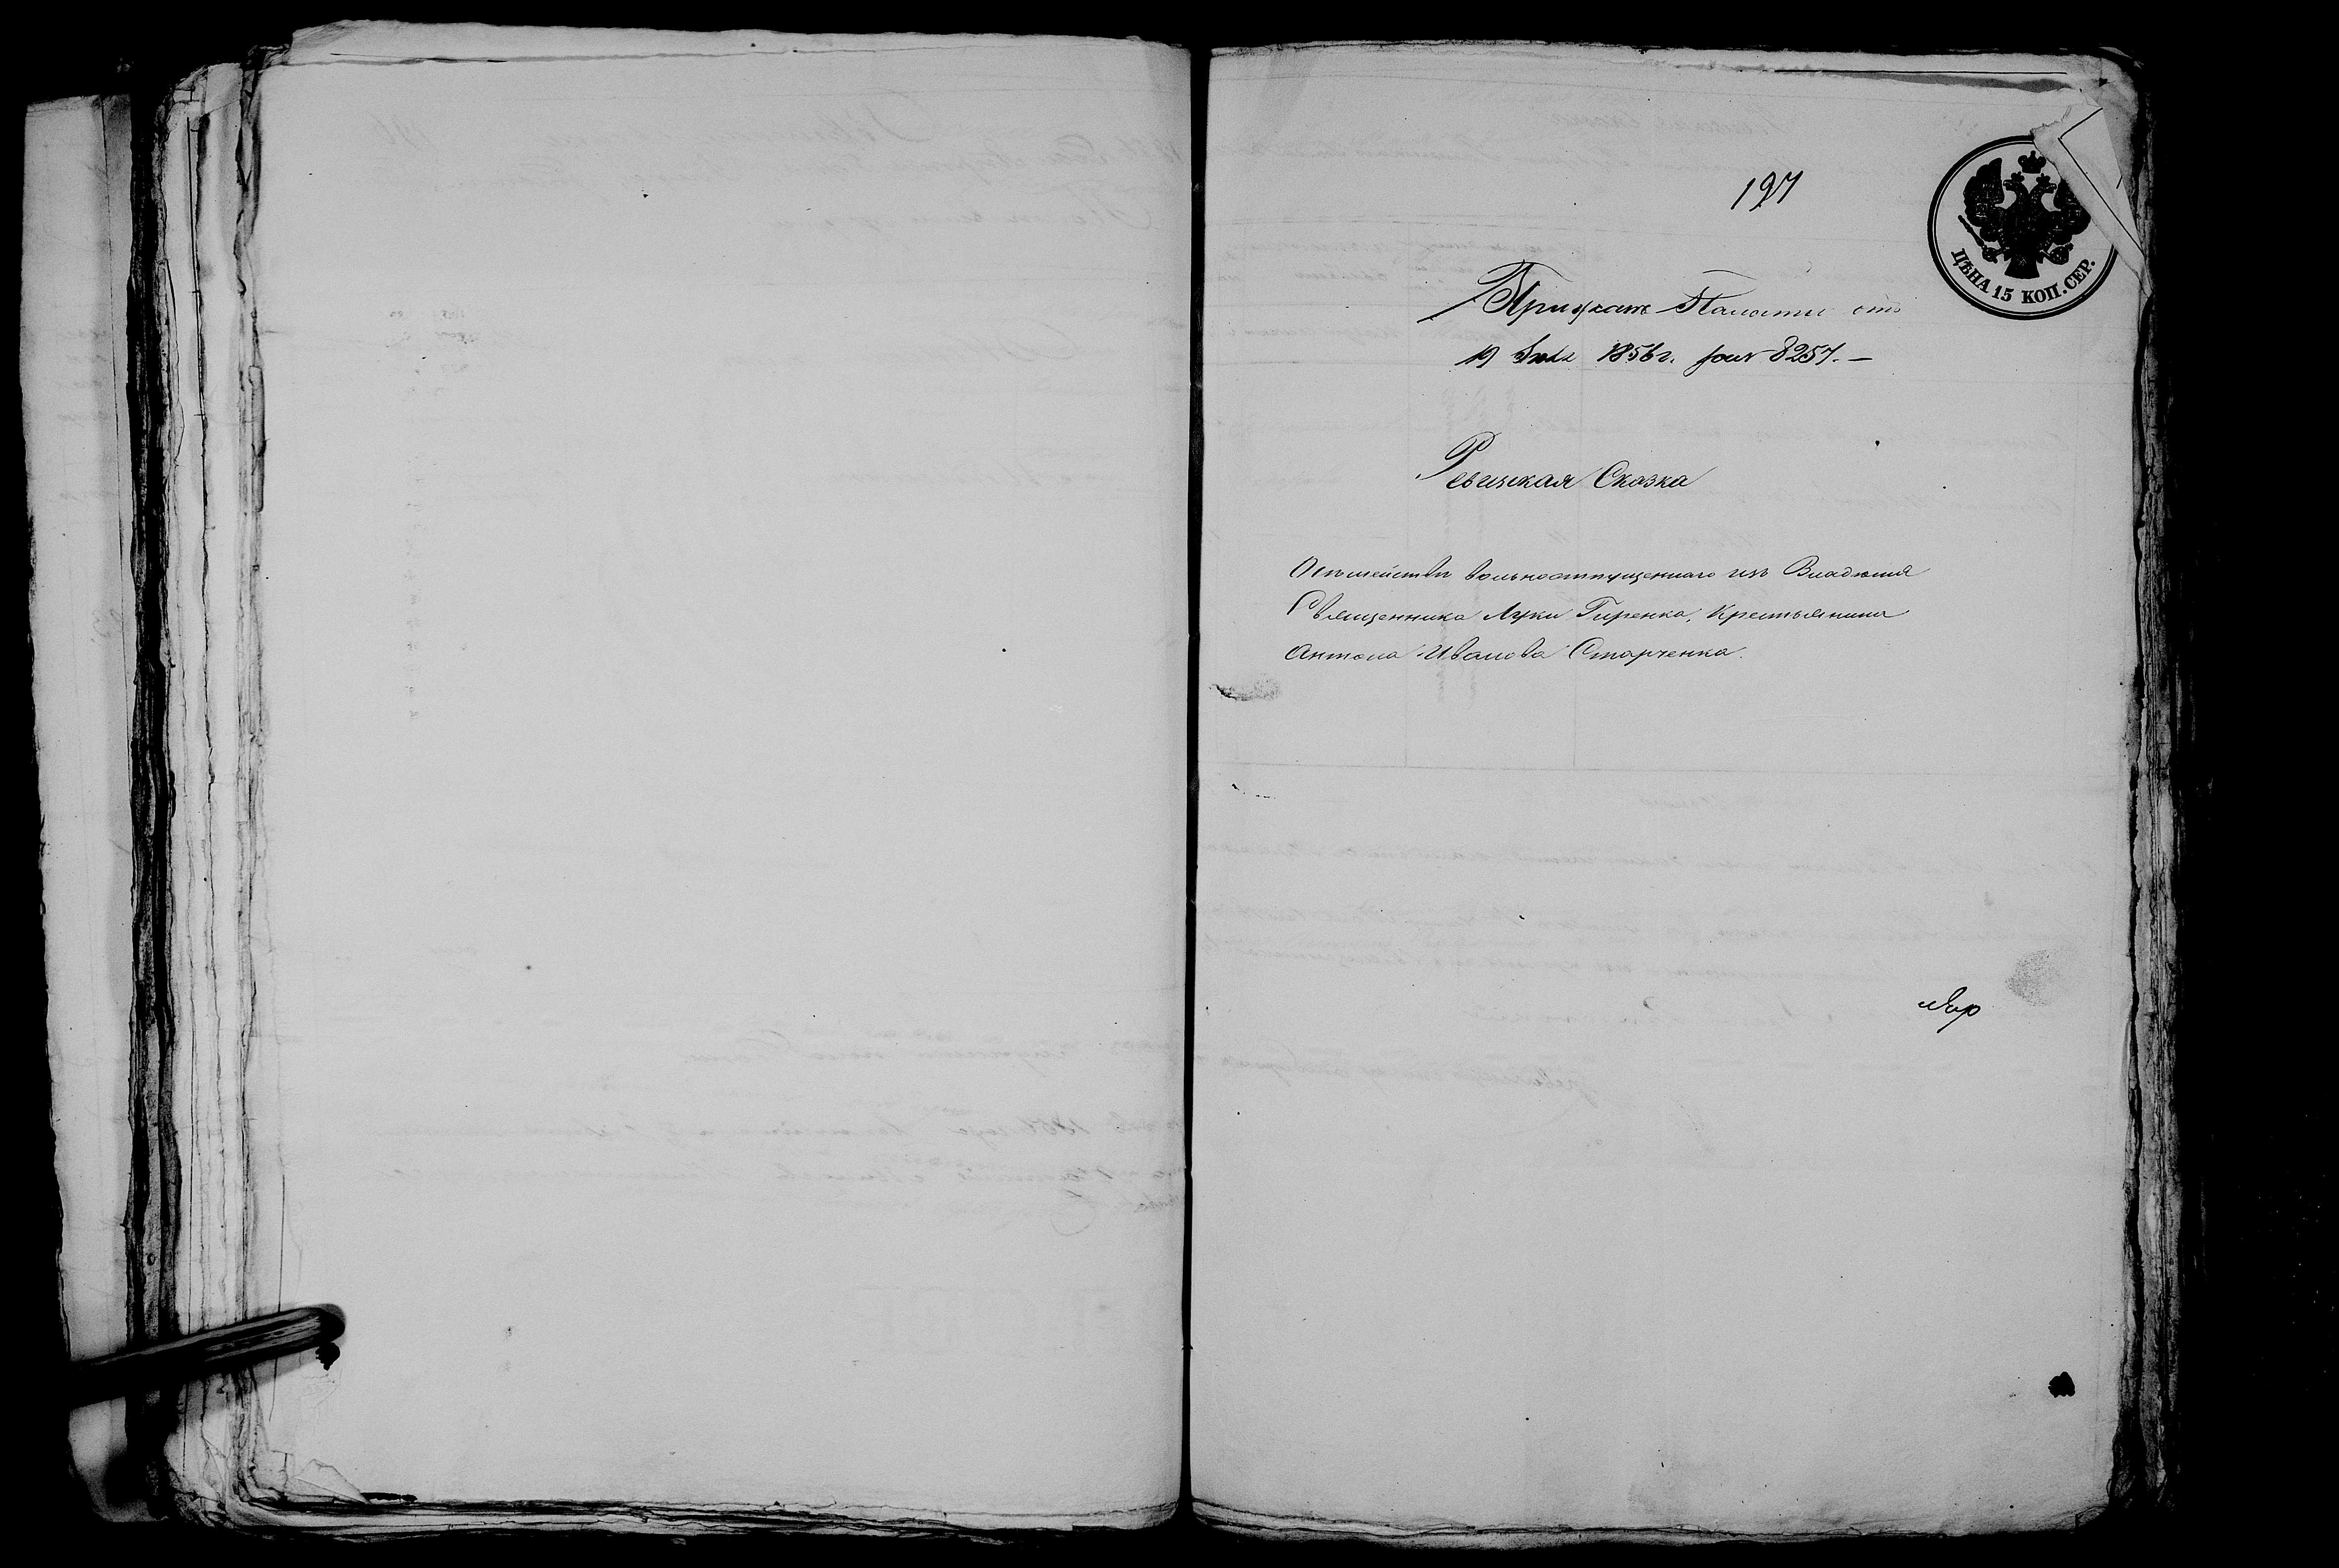 197
ЦѢНА 15 КОП. СЕР.
Приказъ Палаты отъ
19 1856 г. 8257. —
Ревизская Сказка
О семействѣ вольноотпущеннаго изъ Владѣнія
Священника Луки Гиренка, Крестьянина
Антона Иванова Старченка.